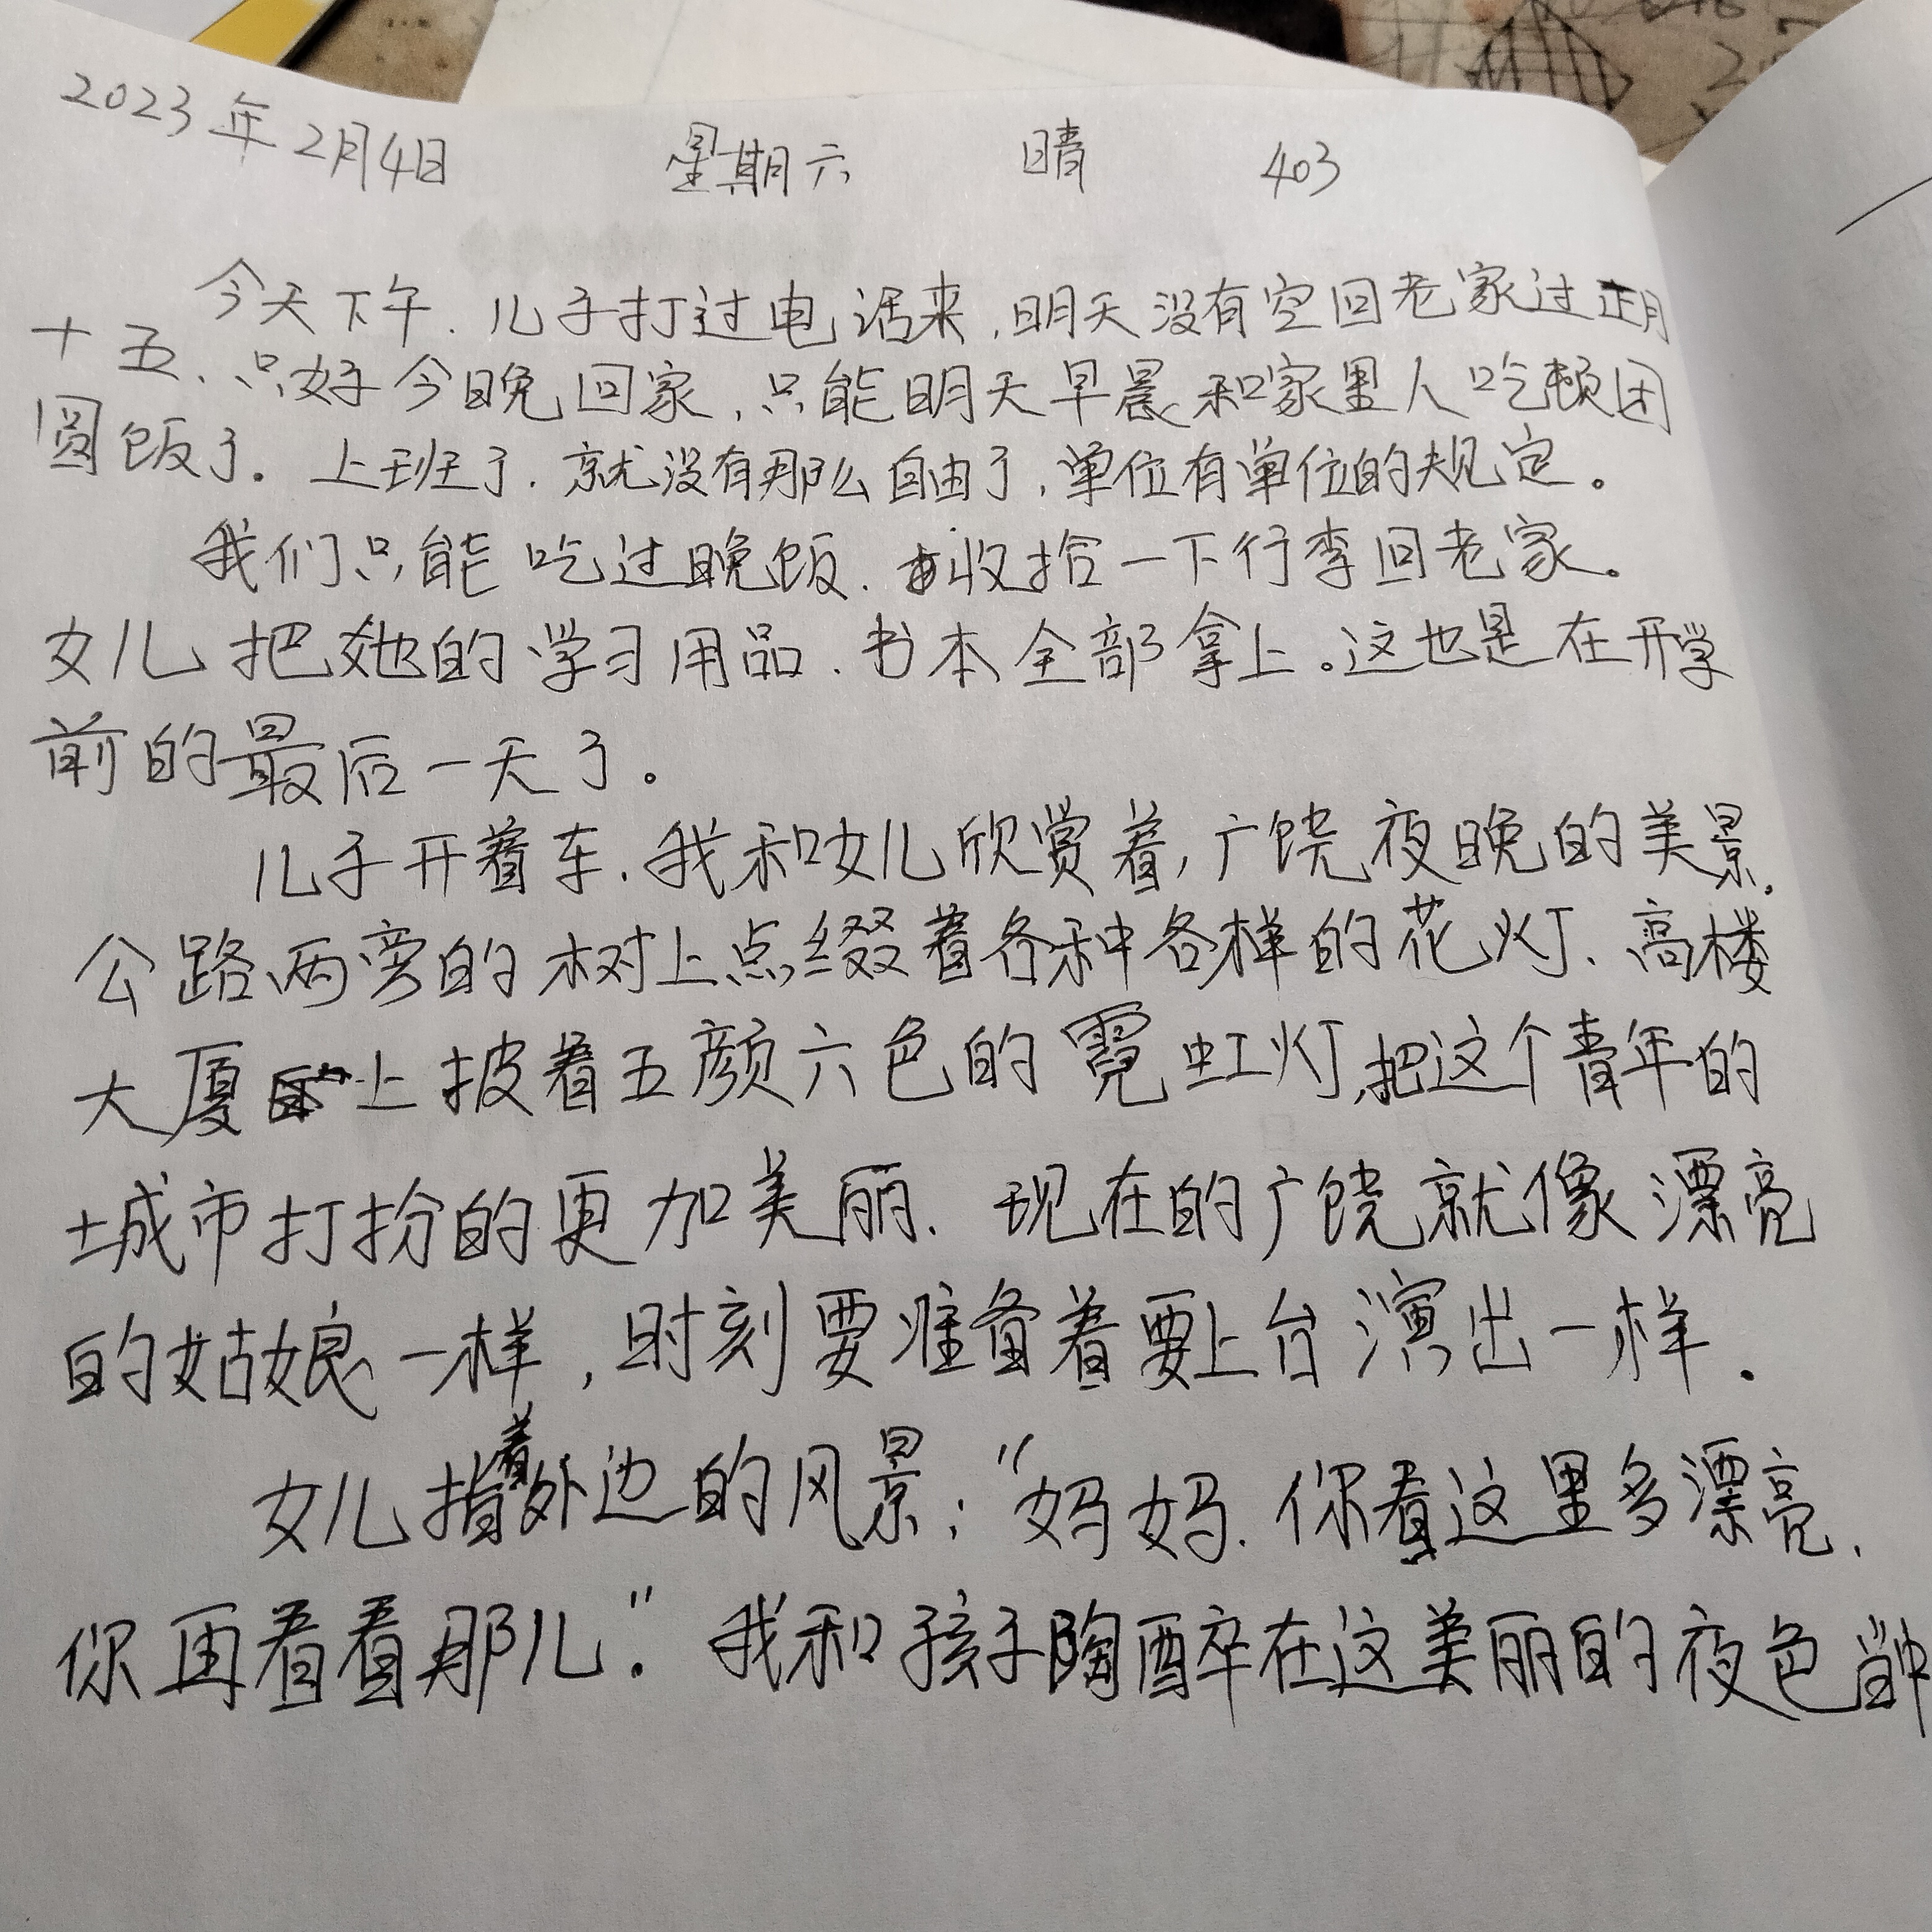 2023年2月4日 星期六 晴 403
今天下午.儿子打过电话来,明天没有空回老家过正月
十五、只好今晚回家,只能明天早晨和家里人吃顿团
圆饭了。上班了.就没有那么自由了,单位有单位的规定。
我们只能吃过晚饭.收拾一下行李回老家。
女儿把她的学习用品.书本全部拿上。这也是在开学
前的最后一天了。
儿子开着车.我和女儿欣赏着,广饶夜晚的美景.
公路两旁的树上点缀着各种各样的花灯、高楼
大厦上披着五颜六色的霓虹灯,把这个青年的
城市打扮的更加美丽.现在的广饶就像漂亮
的姑娘一样,时刻要准备着要上台演出一样.
女儿指着外边的风景:“妈妈.你看这里多漂亮.
你再看看那儿”.我和孩子陶醉在这美丽的夜色当中